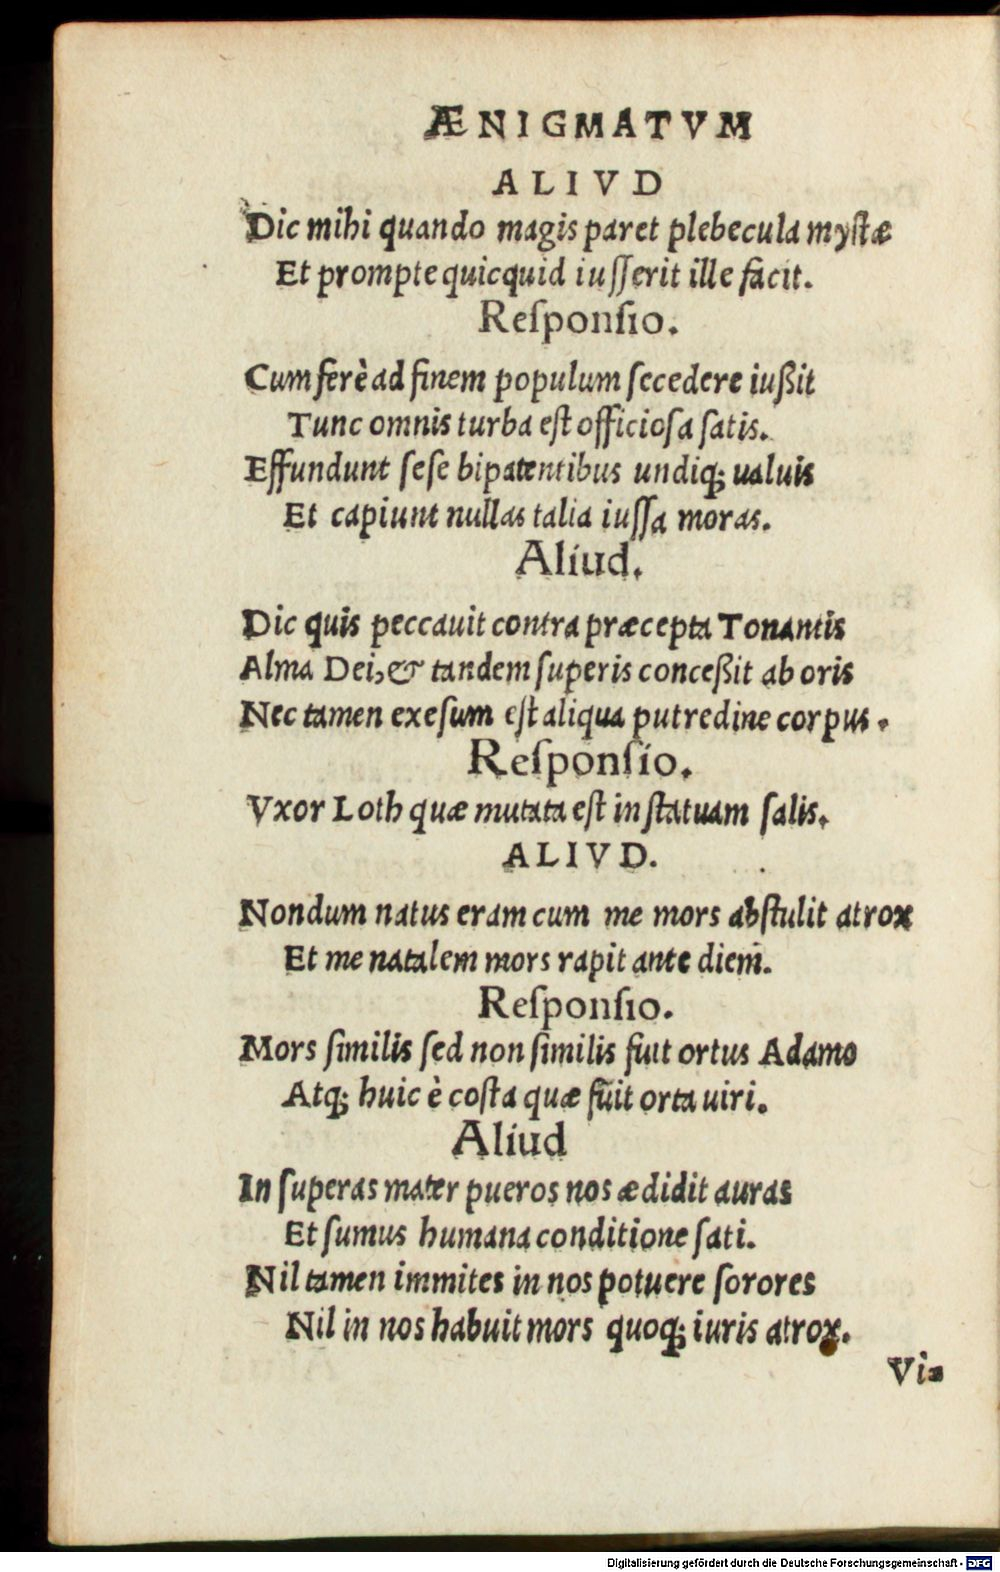 ÆNIGMATVM
ALIVD
Dic mihi quando magis paret plebecula mystæ
Et prompte quicquid iusserit ille facit.
Responsio.
Cum ferè ad finem populum secedere iußit
Tunc omnis turba est officiosa satis.
Effundunt sese bipatentibus undiq; ualuis
Et capiunt nullas talia iussa moras.
Aliud.
Dic quis peccauit contra præcepta Tonantis
Alma Dei, & tandem superis conceßit ab oris
Nec tamen exesum est aliqua putredine corpus.
Responsio.
Vxor Loth quæ mutata est in statuam salis.
ALIVD.
Nondum natus eram cum me mors abstulit atrox
Et me natalem mors rapit ante diem.
Responsio.
Mors similis sed non similis fuit ortus Adamo
Atq; huic è costa quæ fuit orta uiri.
Aliud
In superas mater pueros nos ædidit auras
Et sumus humana conditione sati.
Nil tamen immites in nos potuere sorores
Nil in nos habuit mors quoq; iuris atrox.
Vi=
Digitalisierung gefördert durch die Deutsche Forschungsgemeinschaft - DFG